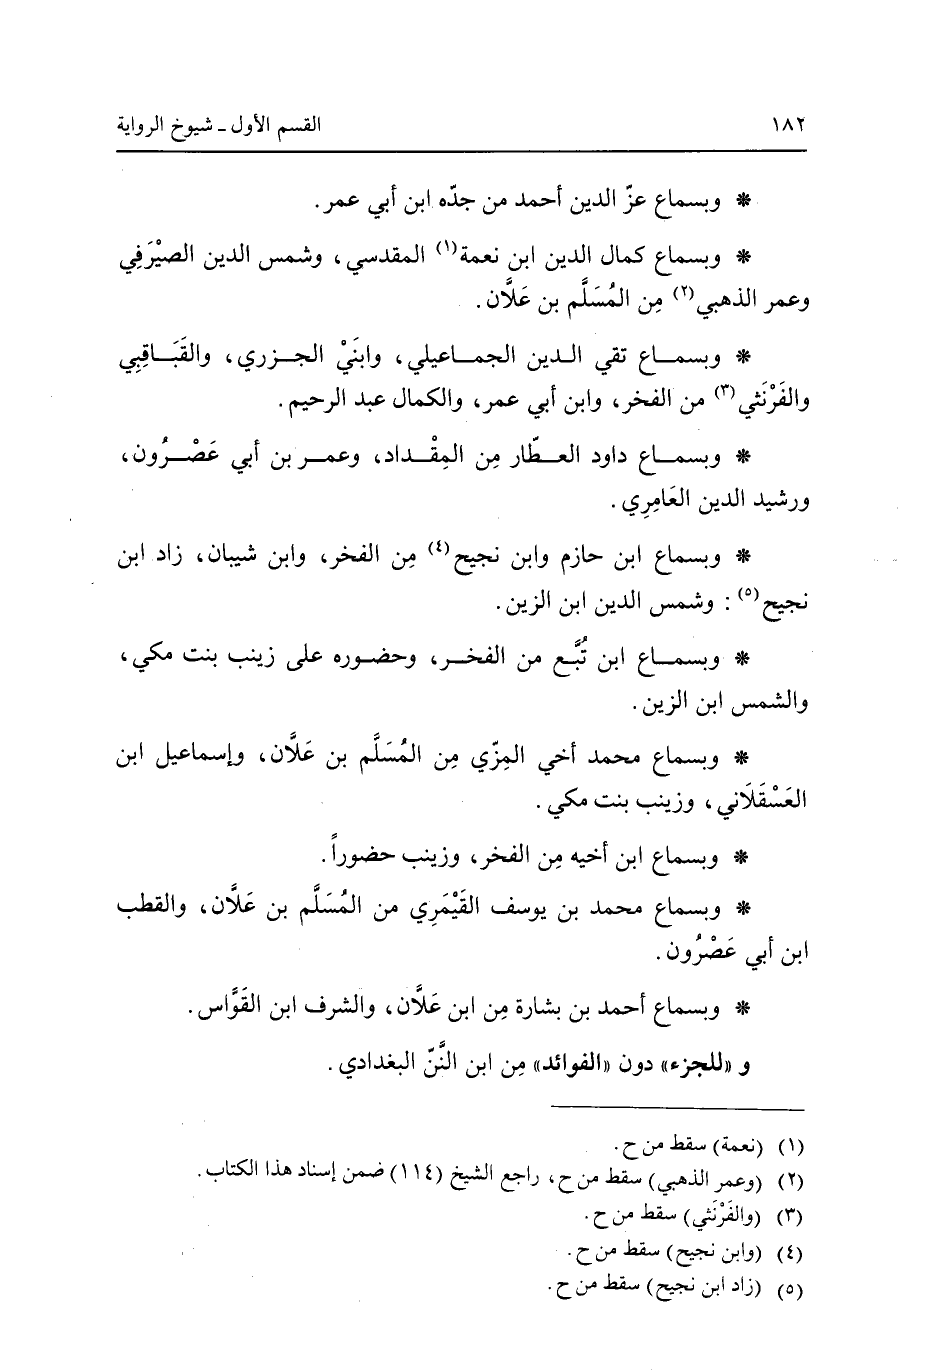 ١٨٢ القسم الأول ـ شيوخ الرواية
* وبسماع عزّ الدين أحمد من جدّه ابن أبي عمر.
* وبسماع كمال الدين ابن نعمة(١) المقدسي، وشمس الدين الصيْرَفِي
وعمر الذهبي(٢) مِن المُسَلَّم بن عَلَّان.
* وبسماع تقي الدين الجماعيلي، وابنَيْ الجزري، والقَبَاقِبِي
والفَرْنَثي(٣) من الفخر، وابن أبي عمر، والكمال عبد الرحيم.
* وبسماع داود العطّار مِن المِقْداد، وعمر بن أبي عَصْرُون،
ورشيد الدين العَامِرِي.
* وبسماع ابن حازم وابن نجيح(٤) مِن الفخر، وابن شيبان، زاد ابن
نجيح(٥): وشمس الدين ابن الزين.
* وبسماع ابن تُبَّع من الفخر، وحضوره على زينب بنت مكي،
والشمس ابن الزين.
* وبسماع محمد أخي المِزّي مِن المُسَلَّم بن عَلَّان، وإسماعيل ابن
العَسْقَلَاني، وزينب بنت مكي.
* وبسماع ابن أخيه مِن الفخر، وزينب حضوراً.
* وبسماع محمد بن يوسف القَيْمَري من المُسَلَّم بن عَلَّان، والقطب
ابن أبي عَصْرُون.
* وبسماع أحمد بن بشارة مِن ابن عَلَّان، والشرف ابن القَوَّاس.
و «للجزء» دون «الفوائد» مِن ابن النَّنّ البغدادي.
(١) (نعمة) سقط من ح.
(٢) (وعمر الذهبي) سقط من ح، راجع الشيخ (١١٤) ضمن إسناد هذا الكتاب.
(٣) (والفَرْنَثي) سقط من ح.
(٤) (وابن نجيح) سقط من ح.
(٥) (زاد ابن نجيح) سقط من ح.